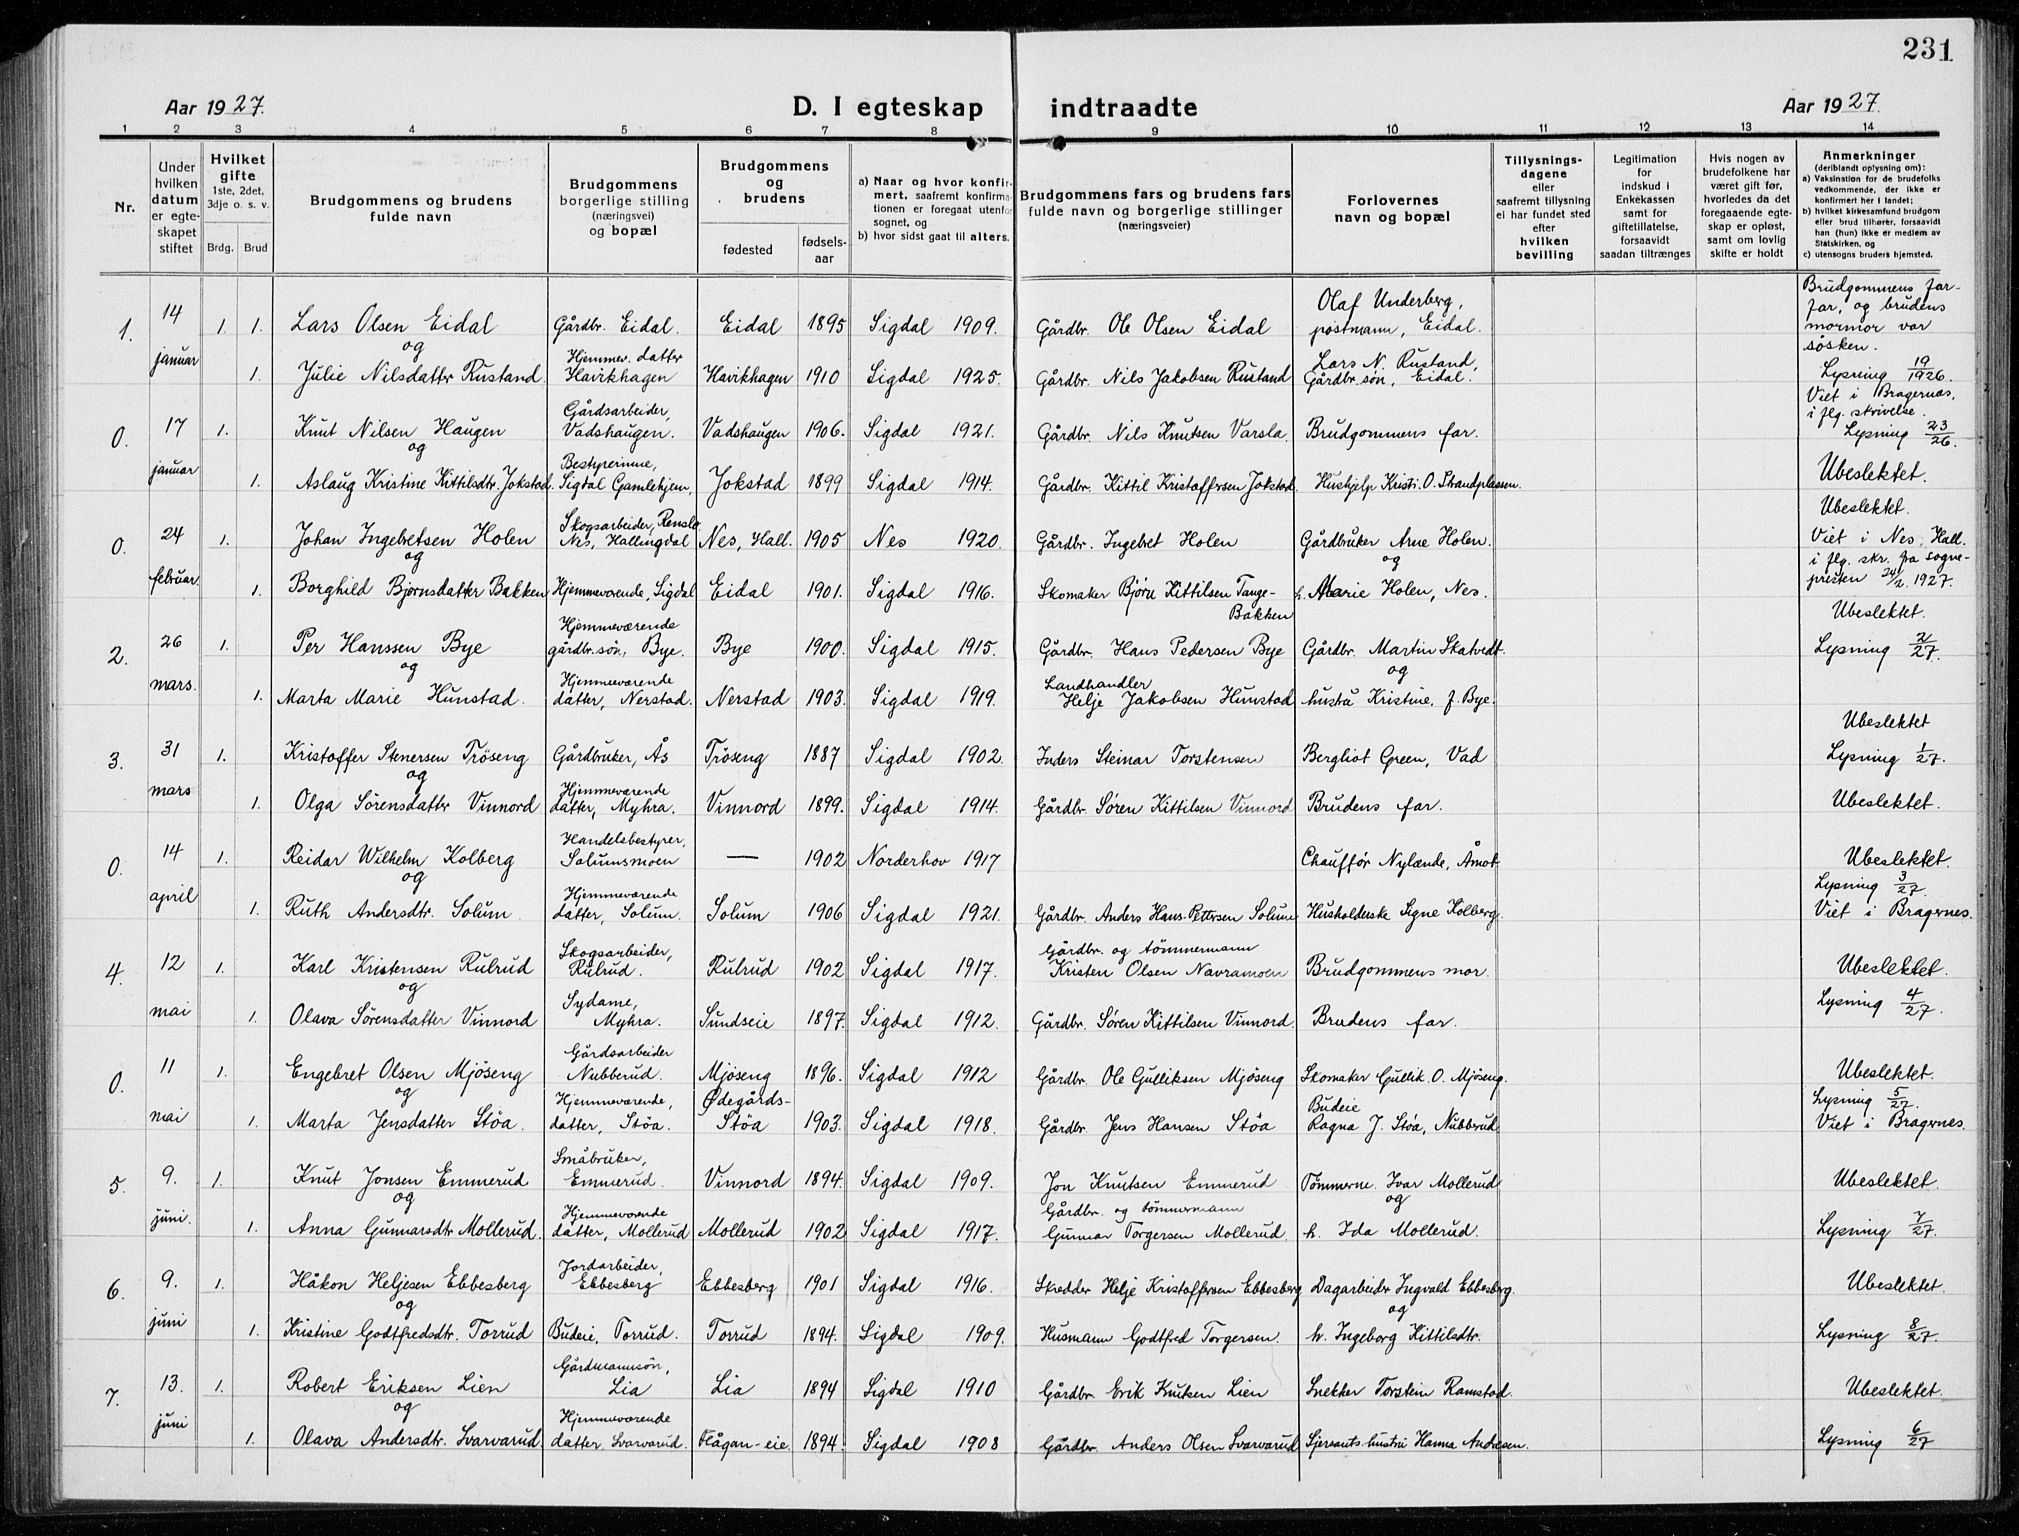 231
Aar 1927.
D. I egteskap indtraadte
Aar 1927.
1 2 3 4 5 6 7 8 9 10 11 12 13 14
Nr.
Under hvilken datum er egteskapet stiftet
Hvilket gifte
1ste, 2det, 3dje o. s. v.
Brdg. Brud
Brudgommens og brudens fulde navn
Brudgommens borgerlige stilling (næringsvei) og bopæl
Brudgommens og brudens
fødested
fødselsaar
a) Naar og hvor konfirmert, saafremt konfirmationen er foregaat utenfor sognet, og
b) hvor sidst gaat til alters.
Brudgommens fars og brudens fars fulde navn og borgerlige stillinger (næringsveier)
Forlovernes navn og bopæl
Tillysningsdagene eller saafremt tillysning ei har fundet sted efter hvilken bevilling
Legitimation for indskud i Enkekassen samt for giftetillatelse, forsaavidt saadan tiltrænges
Hvis nogen av brudefolkene har været gift før, hvorledes da det foregaaende egteskap er opløst, samt om lovlig skifte er holdt
Anmerkninger
(deriblandt oplysning om):
a) Vaksination for de brudefolks vedkommende, der ikke er konfirmert her i landet;
b) hvilket kirkesamfund brudgom eller brud tilhører, forsaavidt han (hun) ikke er medlem av Statskirken, og
c) utensogns bruders hjemsted.
1. 14 januar 1. 1. Lars Olsen Eidal Gårdbr. Eidal. Eidal 1895 Sigdal 1909. Gårdbr. Ole Olsen Eidal Olaf Underberg, postmann, Eidal. Brudgommens farfar, og brudens mormor var søsken.
og
1. Julie Nilsdatter Rustand. Hjemmev. datter Havikhagen Havikhagen 1910 Sigdal 1925. Gårdbr. Nils Jakobsen Rustand Lars N. Rustand, Gårdbr.søn, Eidal. Lysning 19/1926.
0. 17 januar 1. Knut Nilsen Haugen Gårdsarbeider, Vadshaugen. Vadshaugen 1906. Sigdal 1921. Gårdbr. Nils Knutsen Varsla Brudgommens far. Viet i Bragernæs, i flg. skrivelse. Lysning 23/26.
og
1. Aslaug Kristine Kittilsdtr. Jokstad. Bestyrerinne, Sigdal Gamlehjem, Jokstad 1899 Sigdal 1914. Gårdbr. Kittil Kristoffersen Jokstad. Hushjelp Kristi. O. Strandplassen. Ubeslektet.
0. 24 februar. 1. Johan Ingebretsen Holen Skogsarbeider, Renslo Nes, Hallingdal Nes, Hall. 1905 Nes 1920. Gårdbr. Ingebret Holen Gårdbruker Arne Holen. Ubeslektet. Viet i Nes, Hall.
og og
1. Borghild Bjørnsdatter Bakken Hjemmeværende, Sigdal Eidal 1901. Sigdal 1916. Skomaker Bjørn Kittilsen Tange-Bakken h. Marie Holen, Nes. i flg. skr. fra sognepresten 24/2. 1927.
2. 26 mars. 1. Per Hanssen Bye Hjemmeværende gårdbr.søn, Bye. Bye 1900. Sigdal 1915. Gårdbr. Hans Pedersen Bye Gårdbr. Martin Skatvedt. Ubeslektet. Lysning 2/27.
og og
1. Marta Marie Hunstad. Hjemmeværende datter, Nerstad. Nerstad 1903. Sigdal 1919. Landhandler Helje Jakobsen Hunstad hustru Kristine, f. Bye.
3. 31 mars 1. Kristoffer Stenersen Trøseng Gårdbruker, Ås Trøseng 1887 Sigdal 1902. Inders Steinar Torstensen Bergliot Green, Vad Ubeslektet Lysning 1/27.
og
1. Olga Sørensdatter Vinnord Hjemmeværende datter, Myhra. Vinnord 1899. Sigdal 1914. Gårdbr. Søren Kittilsen Vinnord Brudens far. Ubeslektet.
0. 14 april 1. Reidar Wilhelm Kolberg Handelsbestyrer, Solumsmoen — 1902 Norderhov 1917 Chauffør Nylænde, Åmot. Ubeslektet.
og
1. Ruth Andersdtr. Solum. Hjemmeværende datter, Solum. Solum 1906 Sigdal 1921. Gårdbr. Anders Hans-Pettersen Solum Husholderske Signe Kolberg. Lysning 3/27. Viet i Bragernes.
4. 12 mai 1. Karl Kristensen Rulrud Skogsarbeider, Rulrud. Rulrud 1902 Sigdal 1917. Gårdbr. og tømmermann Kristen Olsen Navramoen Brudgommens mor. Ubeslektet.
og
1. Olava Sørensdatter Vinnord Sydame, Myhra. Sundseie 1897. Sigdal 1912. Gårdbr. Søren Kittilsen Vinnord. Brudens far. Lysning 4/27.
0. 11 mai 1. Engebret Olsen Mjøseng Gårdsarbeider Nubberud. Mjøseng 1896. Sigdal 1912 Gårdbr. Ole Gulliksen Mjøseng Skomaker Gullik O. Mjøseng. Ubeslektet.
og
1. Marta Jensdatter Støa. Hjemmeværende, datter, Støa. Ødegårds-Støa 1903. Sigdal 1918. Gårdbr. Jens Hansen Støa Budeie Ragna J. Støa, Nubberud Lysning 5/27. Viet i Bragernes.
5. 9. juni. 1. Knut Jonsen Emmerud Småbruker, Emmerud. Vinnord 1894. Sigdal 1909. Jon Knutsen Emmerud Tømmerm. Ivar Mollerud Ubeslektet.
og og
1. Anna Gunnarsdtr Mollerud. Hjemmeværende datter, Mollerud Mollerud 1902 Sigdal 1917. Gårdbr. og tømmermann Gunnar Torgersen Mollerud. h. Ida Mollerud. Lysning 7/27.
6. 9. juni 1. Håkon Heljesen Ebbesberg Jordarbeider, Ebbesberg Ebbesberg 1901 Sigdal 1916. Skredder Helje Kristoffersen Ebbesberg Dagarbeider Ingvald Ebbesberg. Ubeslektet.
og og
1. Kristine Godtfredsdtr. Torrud Budeie, Torrud. Torrud 1894. Sigdal 1909. Husmann Godtfred Torgersen. h. Ingeborg Kittilsdtr. Lysning 8/27.
7. 13. juni 1. Robert Eriksen Lien Gårdmannsøn, Lia Lia 1894 Sigdal 1910 Gårdbr. Erik Knutsen Lien Snekker Torstein Ramstad. Ubeslektet.
og
1. Olava Andersdtr. Svarvarud. Hjemmeværende datter, Svarvarud. Flågan-eie. 1894. Sigdal 1908 Gårdbr. Anders Olsen Svarvarud Sjersants-hustru Hanna Andresen. Lysning 6/27